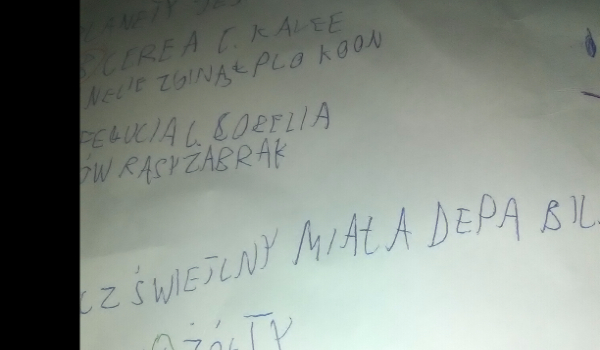 PLANETY JES
B) CEREA C. KALEE
NEIE ZGINĄŁ PLO KOON
C. CORELIA
ÓW RASY ZABRAK
CZ ŚWIETLNY MIAŁA DEPA BIL
ŻÓŁTY